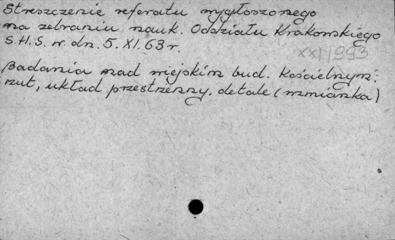 Streszczenie referatu wygłoszonego
na zebraniu nauk. Oddziału Krakowskiego
S.H.S. w dn. 5. XI. 63 r.
XXI/993
Badania nad wiejskim bud. kościelnym:
rzut, układ przestrzenny, detale (wzmianka)